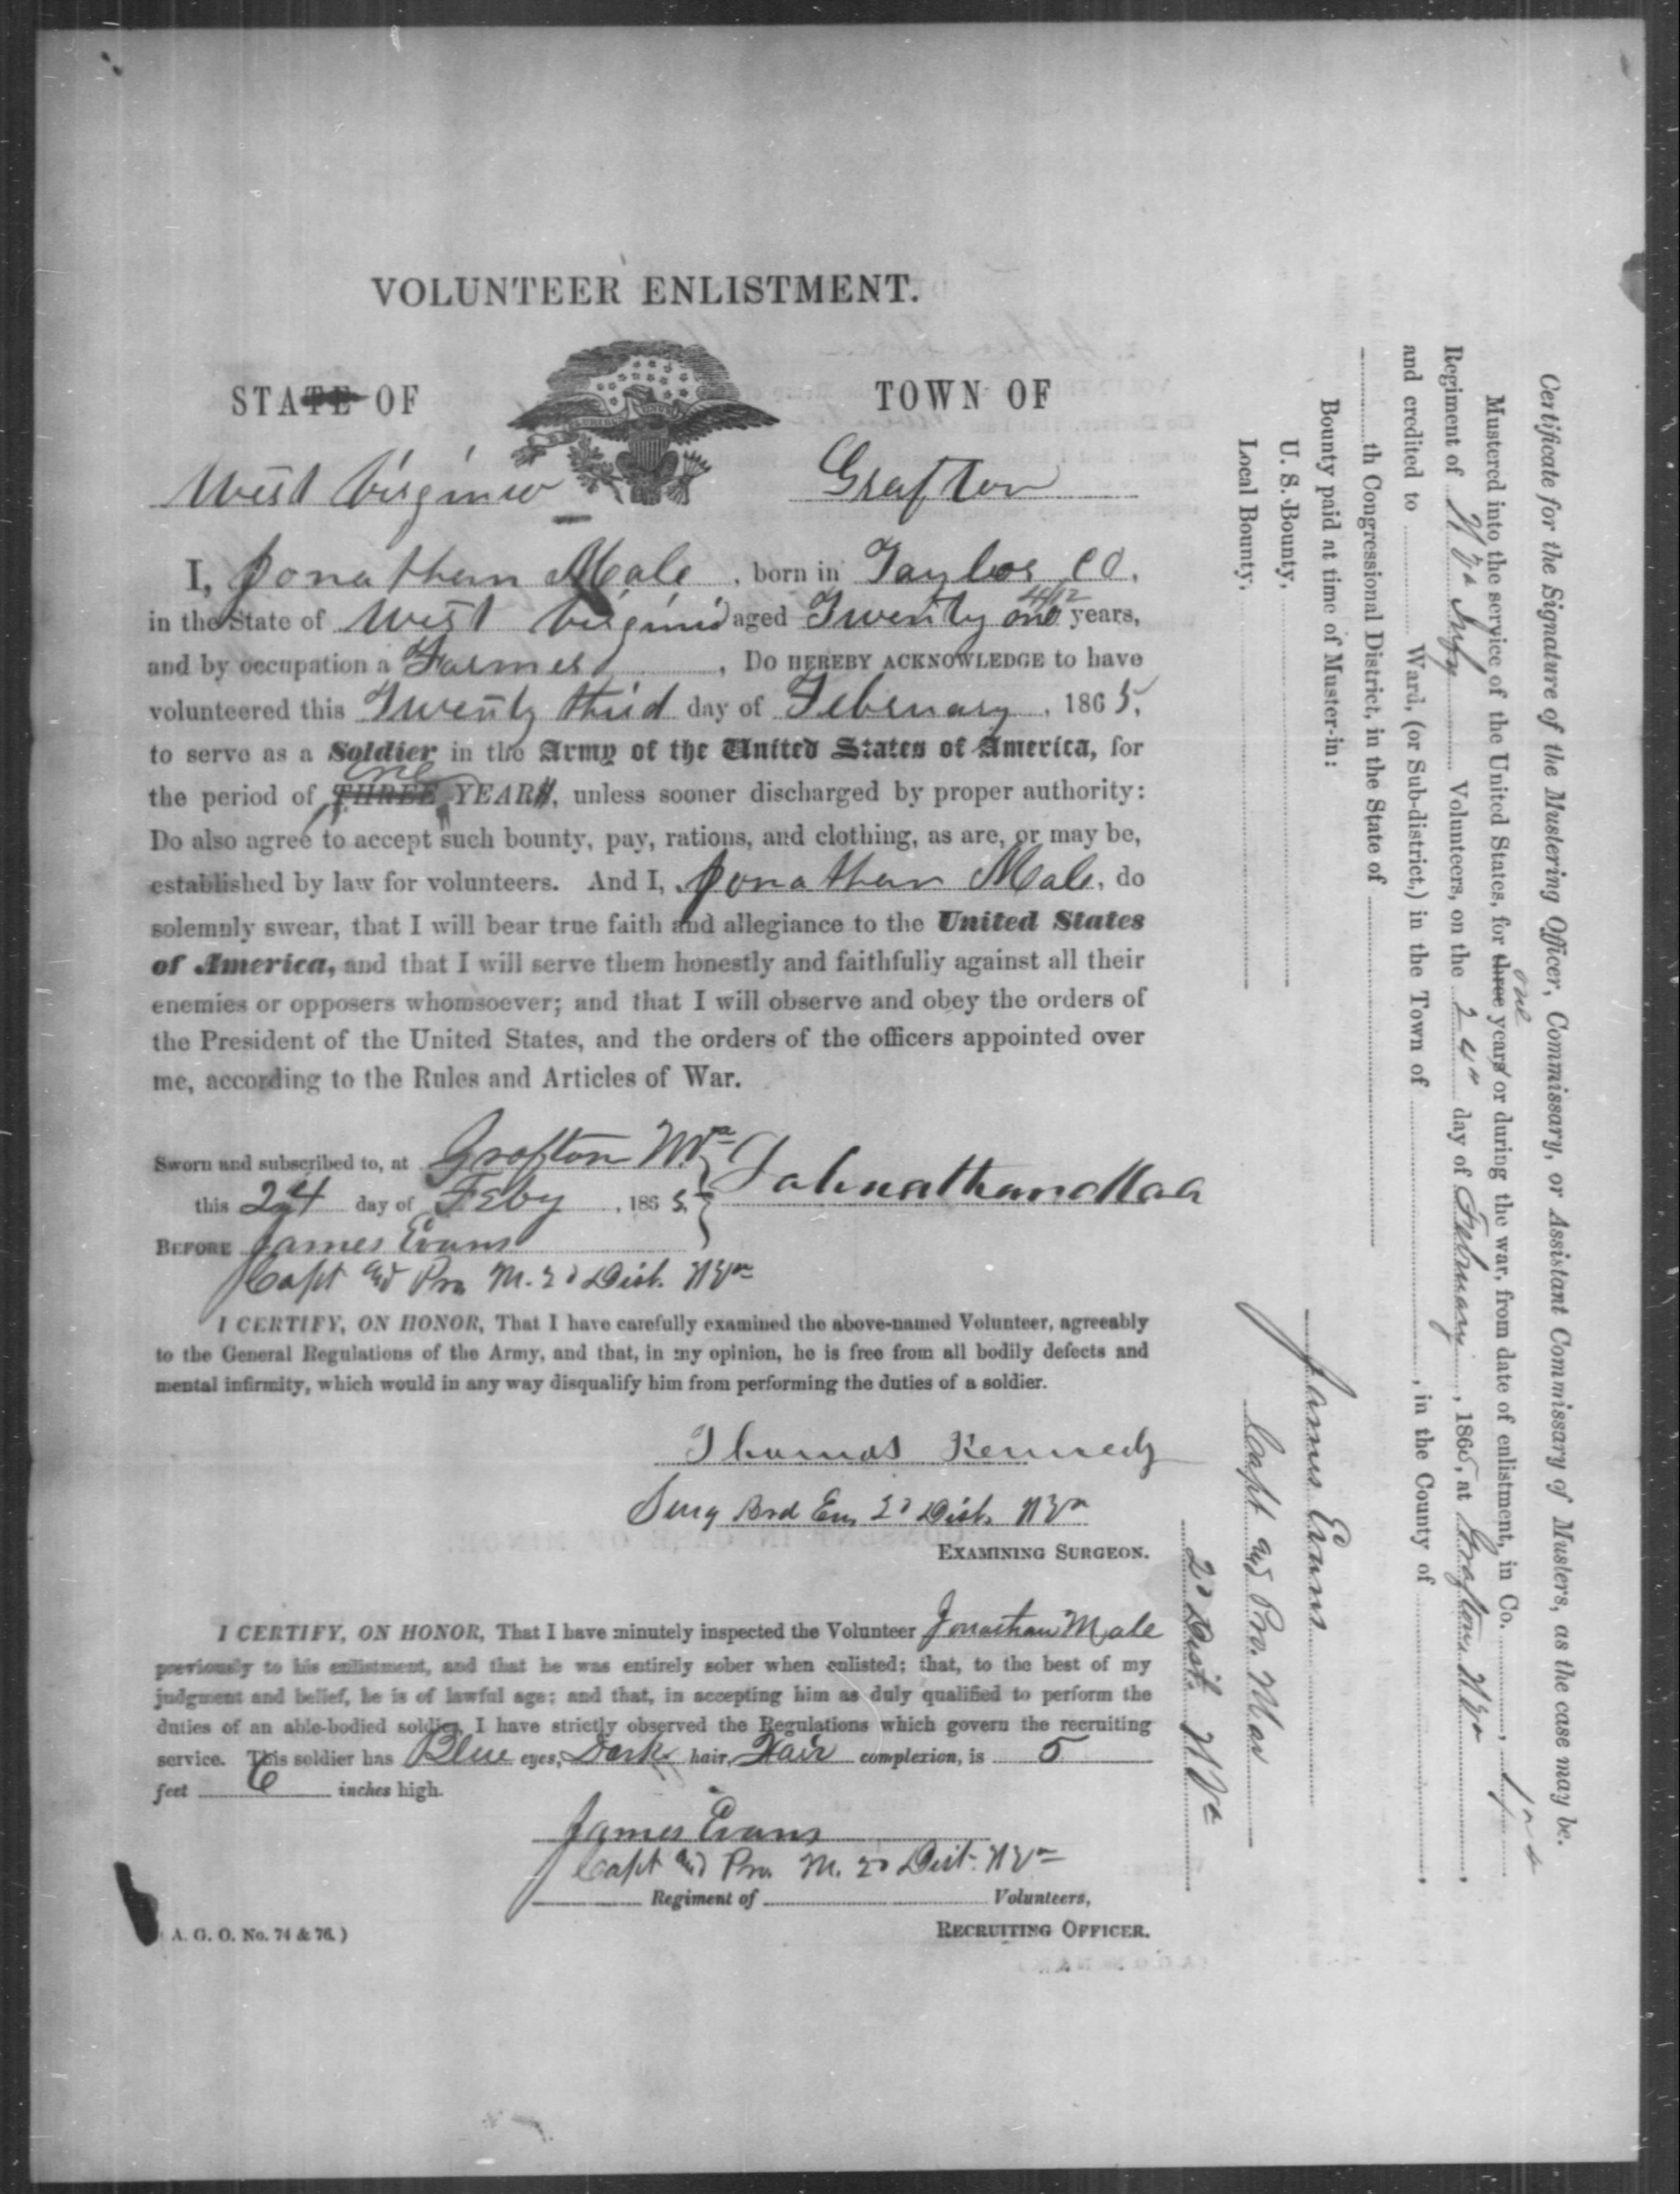 VOLUNTEER ENLISTMENT.
STATE OF
TOWN OF
West Virginia
Grafton
I, Jonathan Male, born in Taylor Co,
in the State of West Virginia aged Twenty one 4/12 years,
and by occupation a Farmer, Do HEREBY ACKNOWLEDGE to have
volunteered this Twenty third day of February, 1865,
to serve as a Soldier in the Army of the United States of America, for
one
the period of THREE YEARS, unless sooner discharged by proper authority:
Do also agree to accept such bounty, pay, rations, and clothing, as are, or may be,
established by law for volunteers. And I, Jonathan Male, do
solemnly swear, that I will bear true faith and allegiance to the United States
of America, and that I will serve them honestly and faithfully against all their
enemies or opposers whomsoever; and that I will observe and obey the orders of
the President of the United States, and the orders of the officers appointed over
me, according to the Rules and Articles of War.
Sworn and subscribed to, at Grafton W.Va
this 24 day of Feby, 1865
BEFORE James Evans
Capt and Pro M. 2d Dist. WVa
I CERTIFY, ON HONOR, That I have carefully examined the above-named Volunteer, agreeably
to the General Regulations of the Army, and that, in my opinion, he is free from all bodily defects and
mental infirmity, which would in any way disqualify him from performing the duties of a soldier.
Thomas Kennedy
Surg Brd En, 2d Dist. WVa
EXAMINING SURGEON.
I CERTIFY, ON HONOR, That I have minutely inspected the Volunteer Jonathan Male
previously to his enlistment, and that he was entirely sober when enlisted; that, to the best of my
judgment and belief, he is of lawful age; and that, in accepting him as duly qualified to perform the
duties of an able-bodied soldier, I have strictly observed the Regulations which govern the recruiting
service. This soldier has Blue eyes, Dark hair, Fair complexion, is 5
feet 6 inches high.
James Evans
Capt and Pro. M. 2d Dist. WVa
Regiment of Volunteers,
RECRUITING OFFICER.
A. G. O. No. 74 & 76.)
Certificate for the Signature of the Mustering Officer, Commissary, or Assistant Commissary of Musters, as the case may be.
one
Mustered into the service of the United States, for three years or during the war, from date of enlistment, in Co.
Regiment of W Va Infy Volunteers, on the 24" day of February, 1865, at Grafton, WVa,
and credited to Ward, (or Sub-district,) in the Town of , in the County of ,
th Congressional District, in the State of
Bounty paid at time of Muster-in:
U. S. Bounty,
Local Bounty,
James Evans
Capt and Pro. Mar
2d Dist. WVa